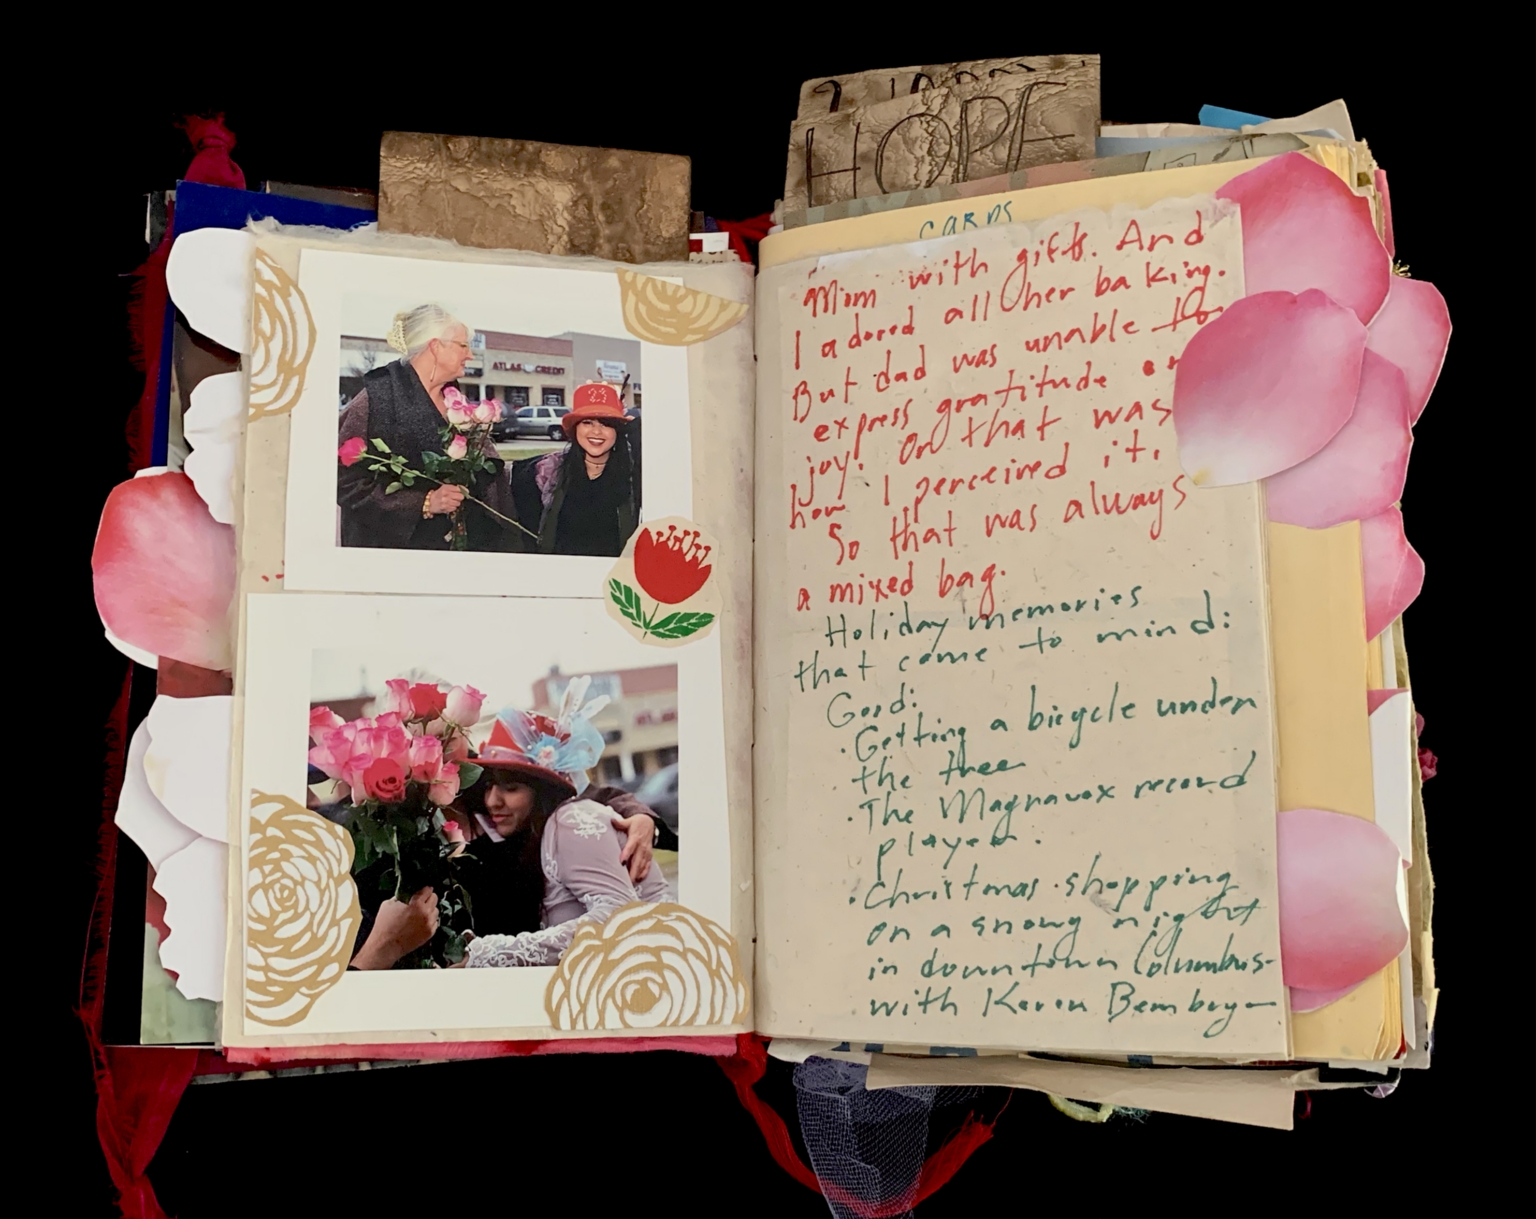 HOPE
CARDS
ATLAS CREDIT
Mom with gifts. And
I adored all her baking.
But dad was unable to
express gratitude or
joy. Or that was
how I perceived it.
So that was always
a mixed bag.
Holiday memories
that come to mind:
Good:
· Getting a bicycle under
the tree
· The Magnavox record
player.
· Christmas shopping
on a snowy night
in downtown Columbus-
with Karen Bembry-